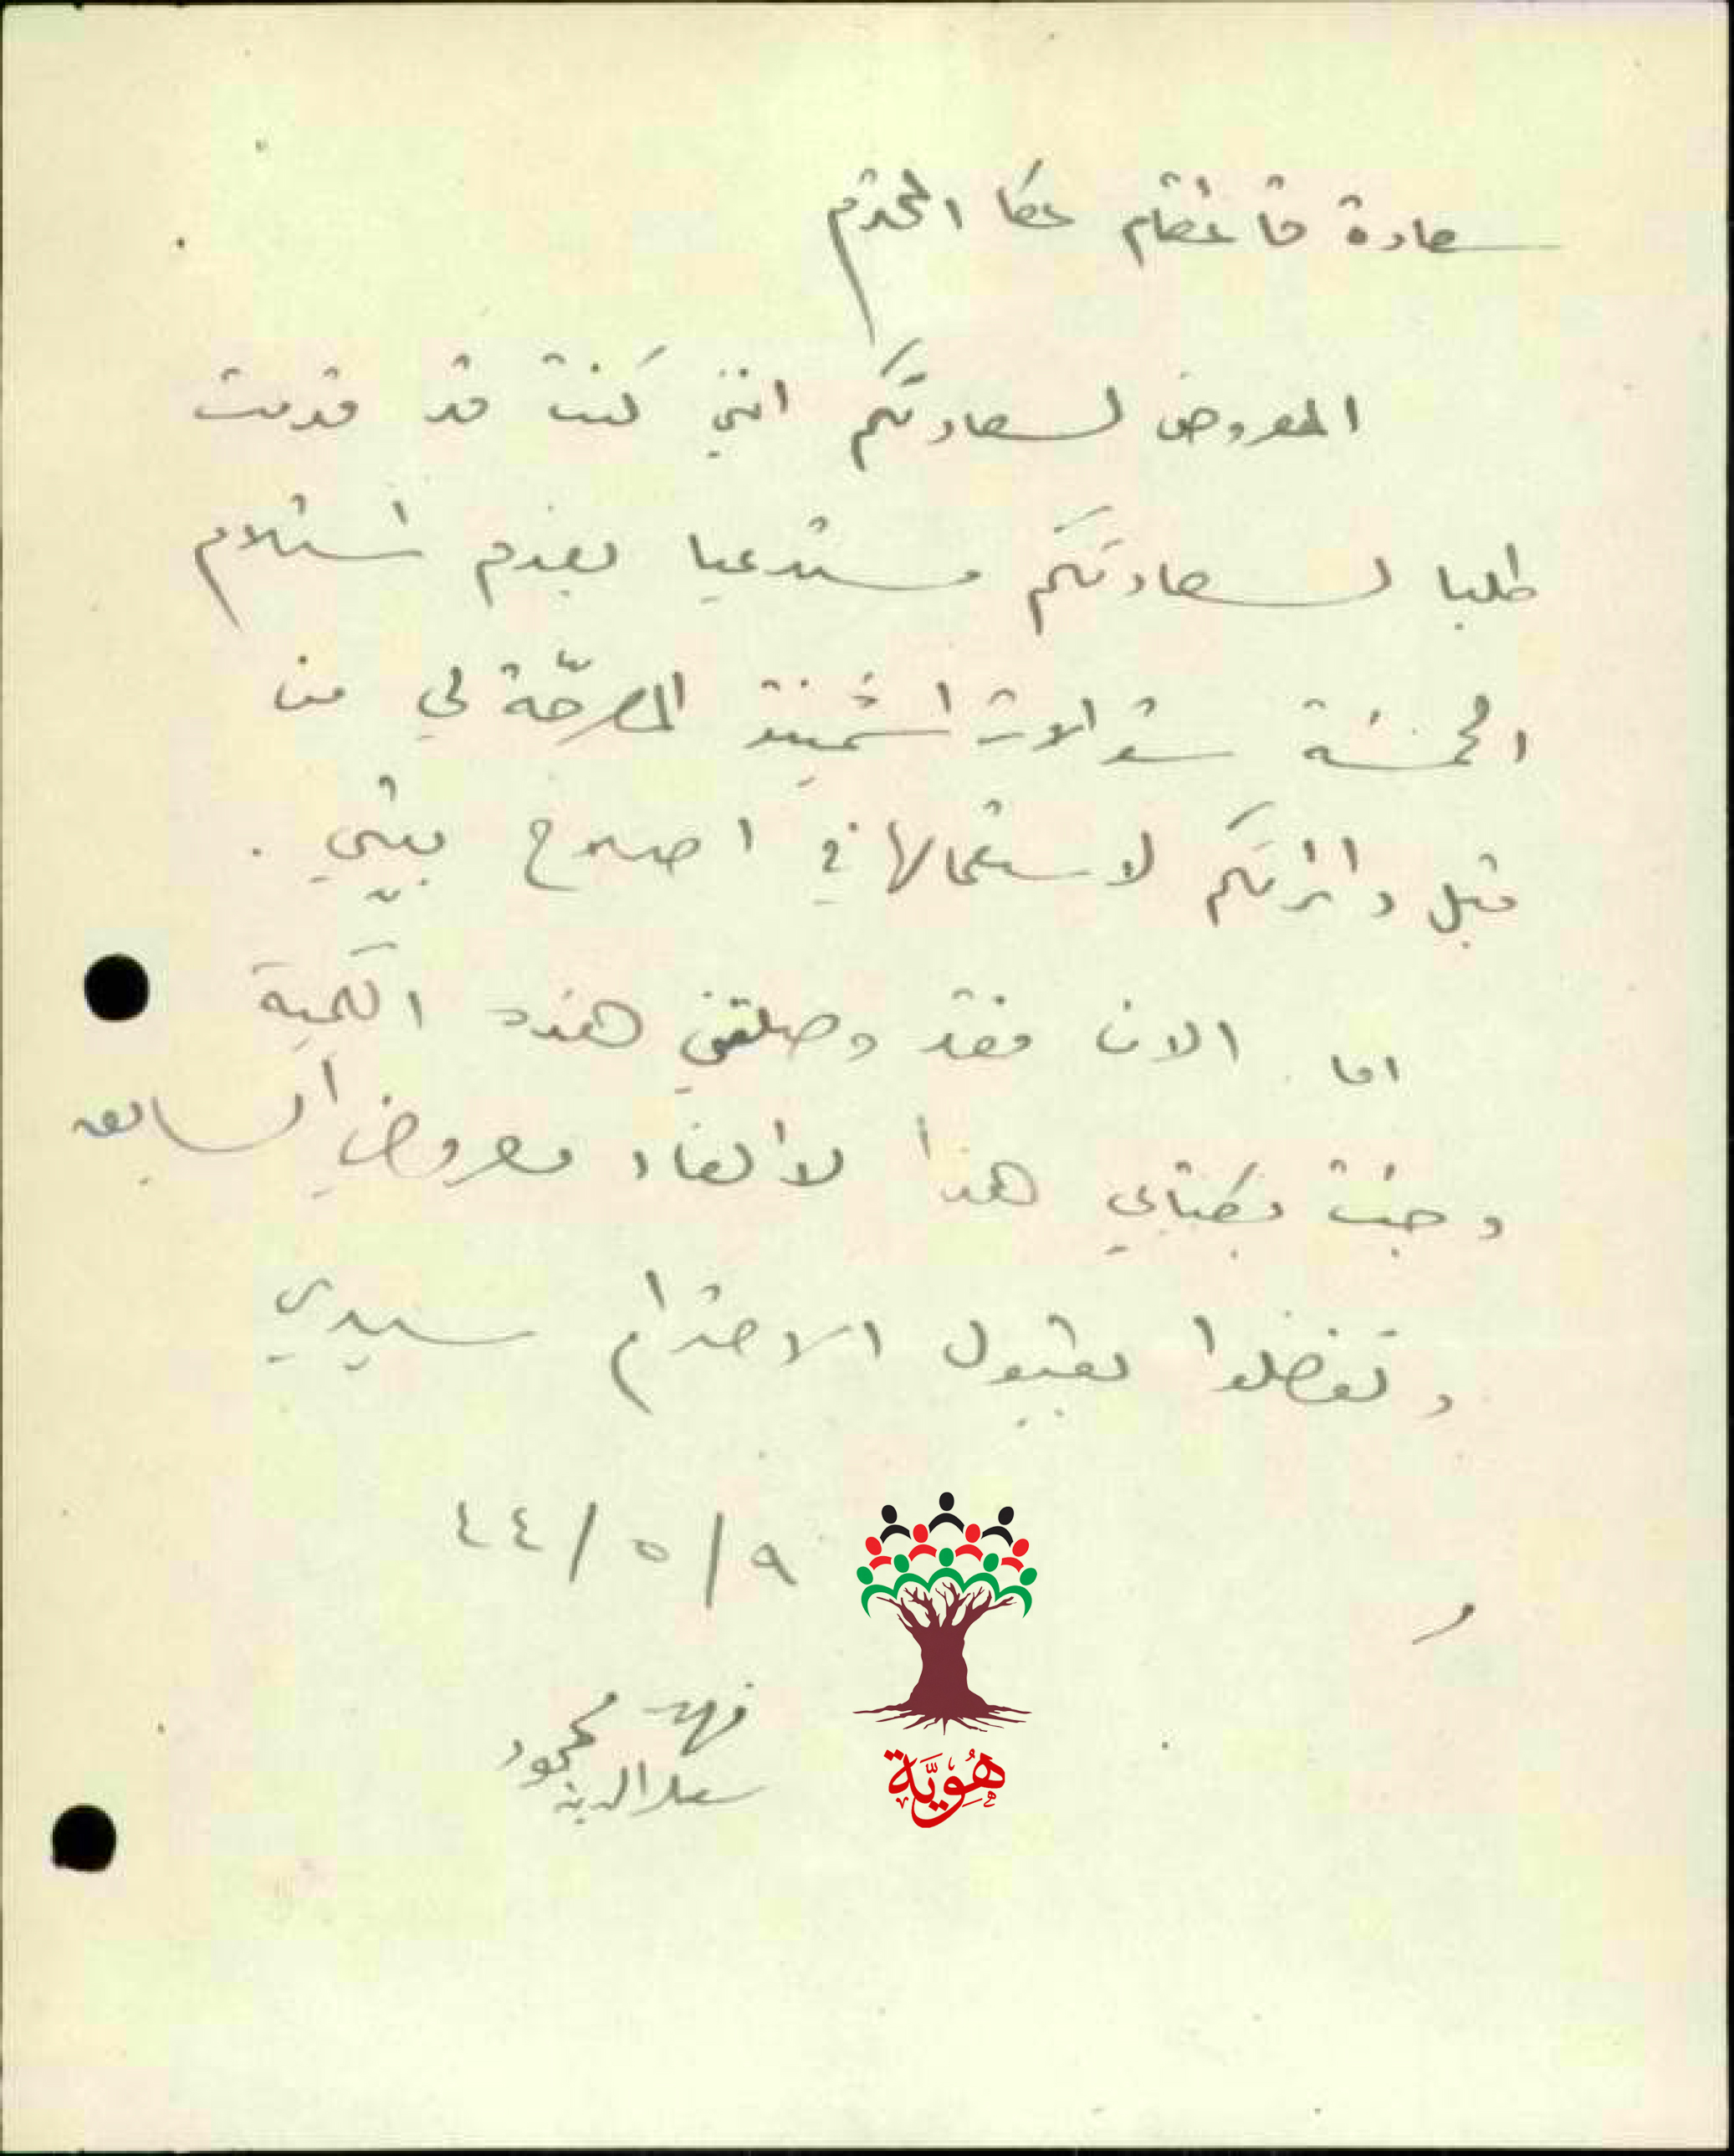 سعادة قائمقام عكا المحترم
المعروض لسعادتكم انني كنت قد قدمت
طلبا لسعادتكم مستدعيا بعدم استلام
الخمسة شوالات اشمنتو المصرّحة لي من
قبل دائرتكم لاستعمالها في اصلاح بيتي .
اما الان فقد وصلتني هذه الكمية
وجئت بكتابي هذا لالغاء معروضي السابق
وتفضلوا بقبول الاحترام سيدي
٩/٥/٤٤
محمود
سعد الدين
هُوِيَّة